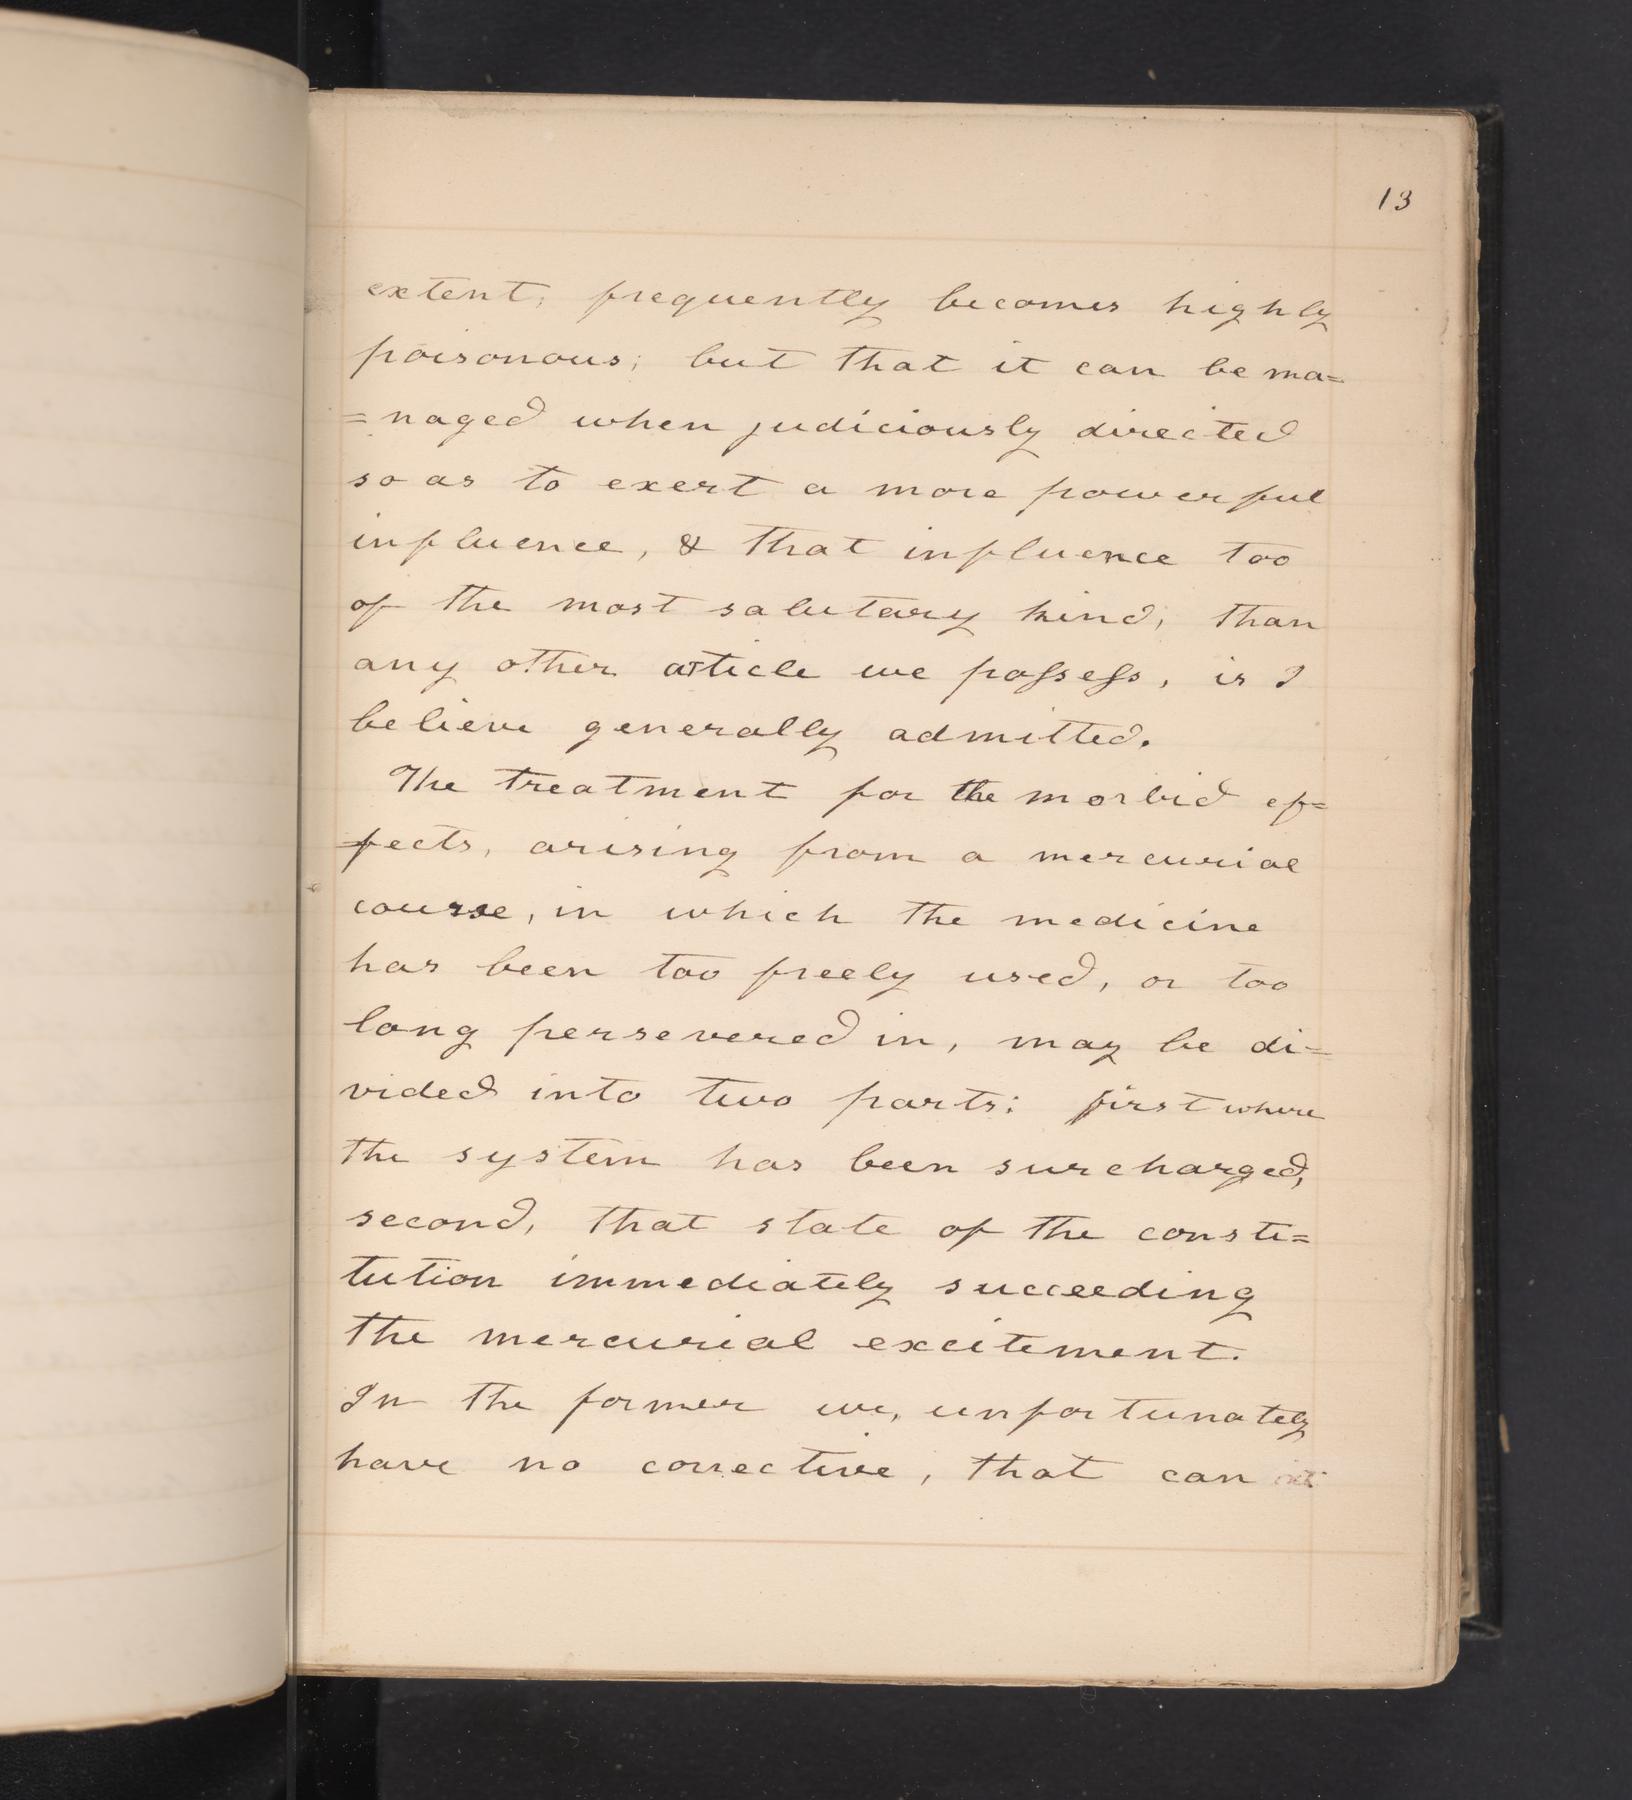 13
extent, frequently becomes highly
poisonous; but that it can be ma=
=naged when judiciously directed
so as to exert a more powerful
influence, & that influence too
of the most salutary kind, than
any other article we possess, is I
believe generally admitted.
The treatment for the morbid ef=
fects, arising from a mercurial
course, in which the medicine
has been too freely used, or too
long persevered in, may be di=
vided into two parts: first where
the system has been surcharged,
second, that state of the consti=
tution immediately succeeding
the mercurial excitement.
In the former we, unfortunately
have no corrective, that can